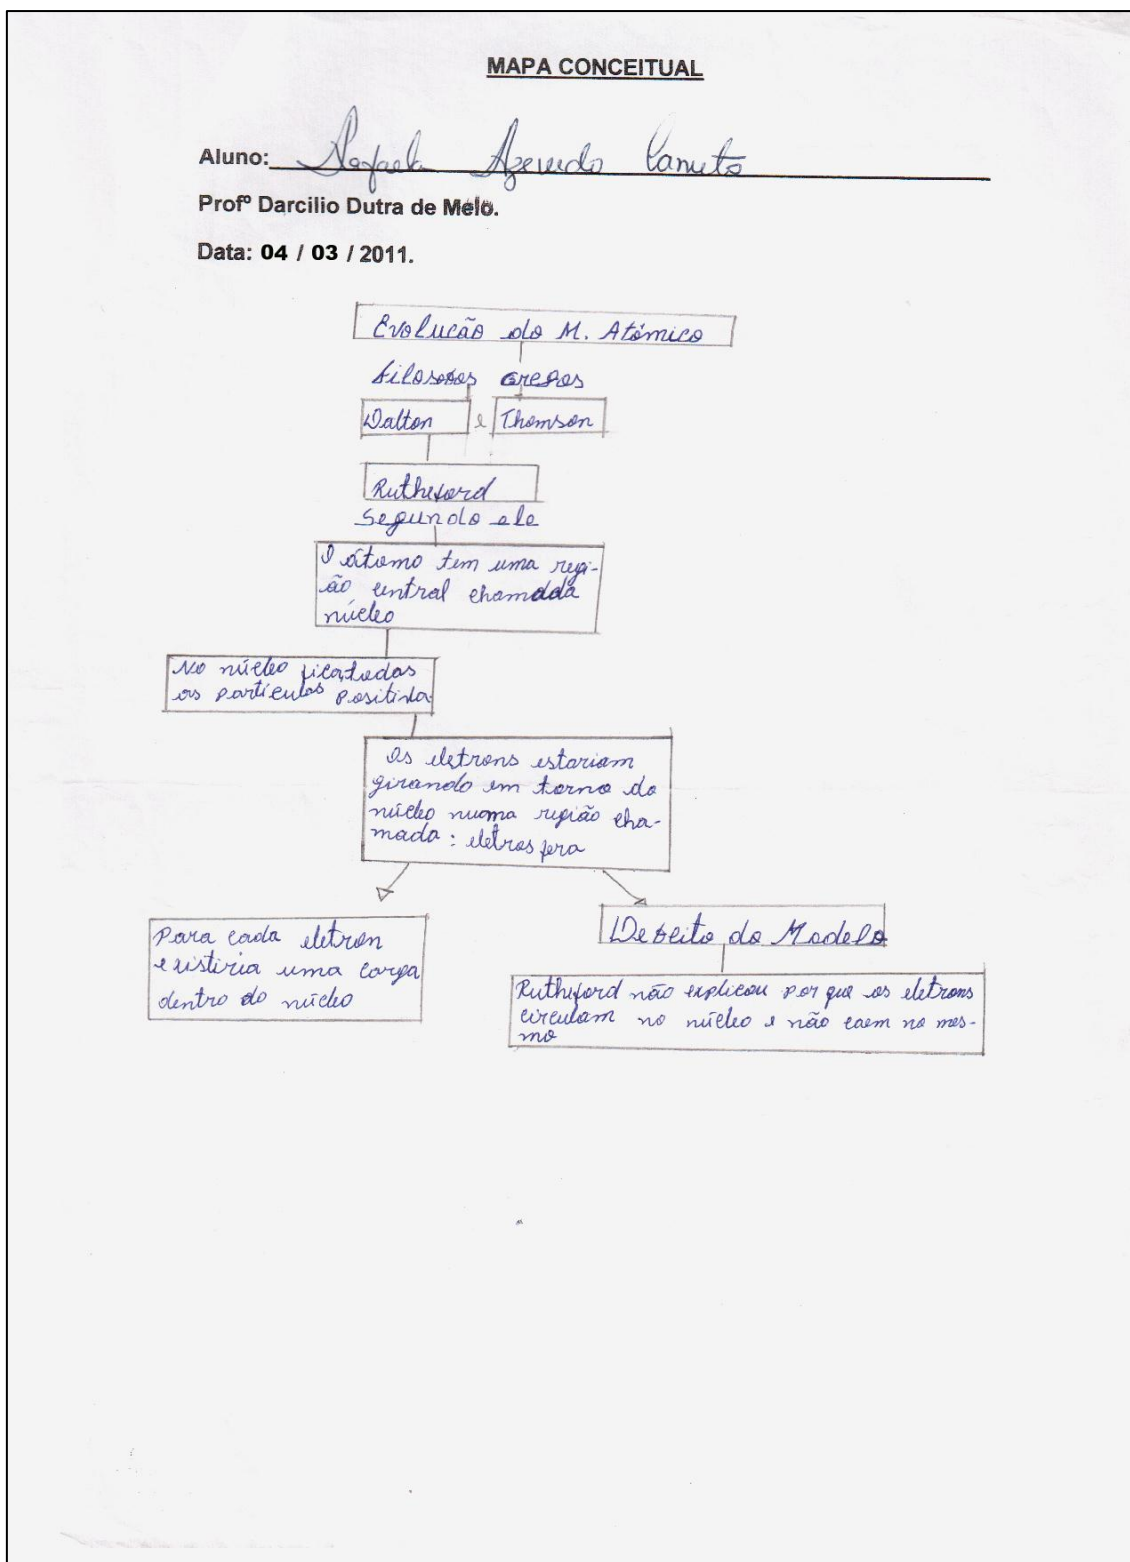 MAPA CONCEITUAL
Aluno: Rafaela Azevedo Canuto
Profº Darcilio Dutra de Melo.
Data: 04 / 03 / 2011.
Evolucão do M. Atómico
filosofos gregos
Dalton e Thomson
Rutheford
Segundo ele
O átomo tem uma regi-
ão central chamada
núcleo
No núcleo ficatodas
as particulas positida
Os eletrons estariam
girando em torno do
núcleo numa região cha-
mada: eletrosfera
Para cada eletron
existiria uma carga
dentro do núcleo
Defeito do Modelo
Rutheford não explicou por que os eletrons
circulam no núcleo e não caem no mes-
mo